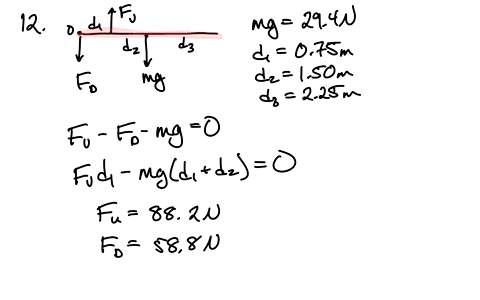 12.
0 d₁ F_U
d₂ d₃
F_D mg
mg = 29.4N
d₁ = 0.75m
d₂ = 1.50m
d₃ = 2.25m
F_U - F_D - mg = 0
F_U d₁ - mg(d₁ + d₂) = 0
F_u = 88.2N
F_D = 58.8N